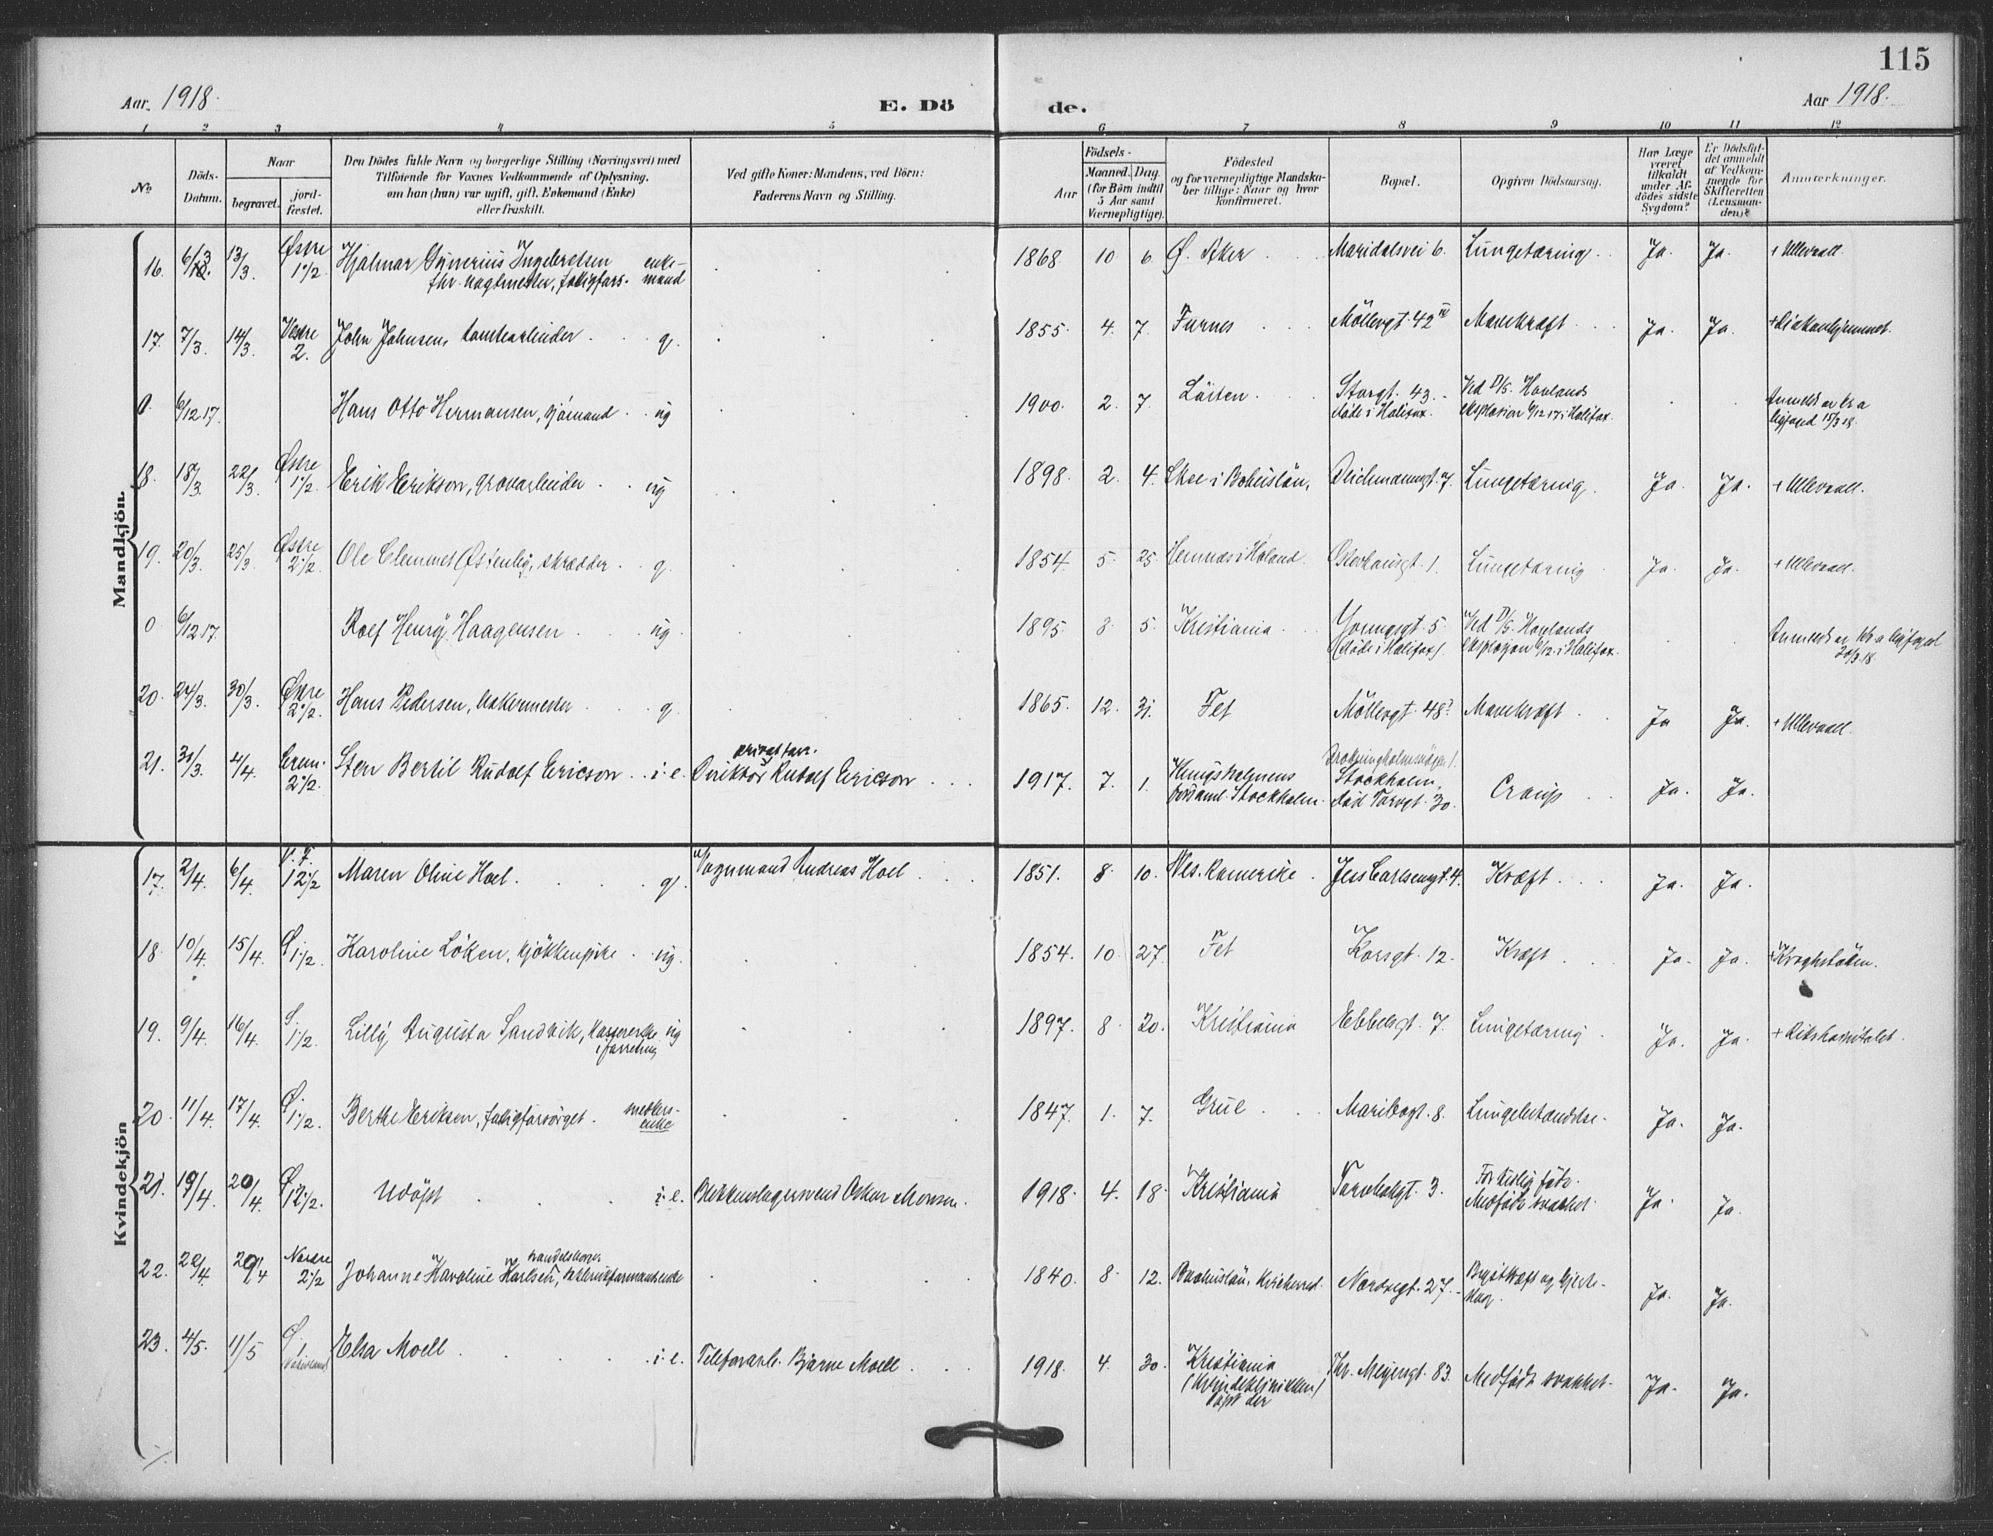 115
Aar 1918.
E. Dö
de.
Aar 1918.
1 2 3 4 5 6 7 8 9 10 11 12
No
Döds-
Datum.
Naar
begravet.
jord-
fæstet.
Den Dödes fulde Navn og borgerlige Stilling (Næringsvei) med
Tilföiende for Voxnes Vedkommende af Oplysning,
om han (hun) var ugift, gift, Enkemand (Enke)
eller fraskilt.
Ved gifte Koner: Mandens, ved Börn:
Faderens Navn og Stilling.
Födsels-
Aar
Maaned. Dag.
(for Börn indtil
5 Aar samt
Værnepligtige).
Födested
og for værnepligtige Mandska-
ber tillige: Naar og hvor
konfirmeret.
Bopæl.
Opgiven Dödsaarsag.
Har Læge
været
tilkaldt
under Af-
dödes sidste
Sygdom?
Er Dödsfal-
det anmeldt
af Vedkom-
mende for
Skifteretten
(Lensman-
den)?
Anmærkninger.
Mandkjön.
16. 6/3 13/3. Østre 1 1/2 Hjalmar Ingebretsen enke-
mand 1868 10 6. Ø. Aker Maridalsvei 6. Lungetæring Ja. Ja. + Ullevaal.
17. 7/3. 14/3. Vestre 2. John Johnsen, tomtearbeider g. 1855. 4. 7. Furnes Möllergt. 42 IV Mavekræft Ja. Ja. + Diakonhjemmet.
0. 6/12 17. Hans Otto Hermansen, sjömand ug 1900. 2. 7 Löiten Storgt. 43. Ved D/S. Hovlands
döde i Halifax. eksplosion 6/12 17 i Halifax. Anmeldt
15/3 18.
18. 18/3 22/3. Østre 1 1/2. Erik Erikson, grovarbeider ug 1898. 2. 4. Skee i Bohuslän. Deichmannsgt. 7. Lungetæring. Ja. Ja. + Ullevaal.
19. 20/3. 25/3. Østre 2 1/2. Ole Clemmet skrædder g. 1854. 5. 25. Hemnæs i Höland. Osterhausgt. 1. Lungetæring Ja. Ja. + Ullevaal.
0 6/12 17. Rolf Henry Haagensen ug. 1895. 5. Kristiania Youngsgt. 5 Ved D/S. Hovlands
(döde i Halifax). eksplosjon 6/12. i Halifax. Anmeldt
20/3 18.
20. 24/3. 30/3. Østre 2 1/2. Hans Pedersen, g. 1865. 12. 31. Fet Möllergt. 48 Mavekræft Ja Ja. + Ullevaal.
21. 30/3. 4/4. Crem. 2 1/2. Sten Bertil Rudolf Ericson i. e. Direktör Rudolf Ericson 1917. 7. 1. Kungsholmens
församl. Stockholm. Stockholm,
död Torvgt. 30. Croup Ja. Ja.
Kvindekjön
17. 2/4. 6/4. V. F. 12 1/2 Maren Oline Hoel. g. Vognmand Andreas Hoel 1851. 8. 10. Nes. Romerike. Jess Carlsensgt. 4. Kræft Ja. Ja.
18. 10/4. 15/4. Ø 1 1/2. Karoline Löken, kjökkenpike ug. 1854. 10. 27. Fet Korsgt. 12. Kræft Ja. Ja. + Kroghstötten.
19. 9/4. 16/4. 1 1/2. Lilly Augusta Sandvik, kassererske
i forretning ug 1897. 8. 20. Kristiania Ebbelsgt. 7. Lungetæring Ja. Ja. + Rikshospitalet.
20. 11/4. 17/4. Ø. 1 1/2. Berthe Eriksen, fattigforsörget.
enke 1847. 1. 7. Grue Maribogt. 8. Lungebetændelse. Ja. Ja.
21. 19/4. 20/4. Ø 12 1/2. Udöpt i. e. Blikkenslagersvend Oskar Monsen. 1918. 4. 18. Kristiania Torvbakgt. 3. For tidlig födt.
Medfödt svakhet. Ja. Ja.
22. 22/4. 29/4 Nordre 2 1/2 Johanne Karoline Karlsen, 1840. 8. 12. Bohuslän, Nordregt. 27. Brystkræft og hjerte-
Ja. Ja.
23. 4/5. 11/5 Ø 1. Elsa Moell i. e. Telefonarb. Bjarne Moell 1918. 4. 30. Kristiania
(Kvindeklinikken)
döpt der Thv. Meyersgt. 83. Medfödt svakhet. Ja. Ja.